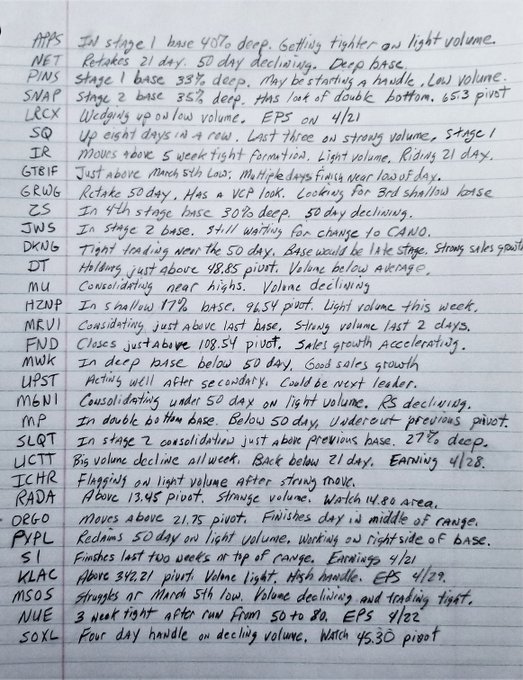 APPS In stage 1 base 40% deep. Getting tighter on light volume.
NET Retakes 21 day. 50 day declining. Deep base
PINS Stage 1 base 33% deep. May be starting a handle. Low volume.
SNAP Stage 2 base 35% deep. Has look of double bottom. 65.3 pivot
LRCX Wedging up on low volume. EPS on 4/21
SQ Up eight days in a row. Last three on strong volume. Stage 1
IR Moves above 5 week tight formation. Light volume. Riding 21 day.
GTBIF Just above March 5th Low. Multiple days finish near low of day.
GRWG Retake 50 day. Has a VCP look. Looking for 3rd shallow base
ZS In 4th stage base 30% deep. 50 day declining.
JWS In stage 2 base. Still waiting for change to CANO.
DKNG Tight trading near the 50 day. Base would be late stage. Strong sales growth
DT Holding just above 48.85 pivot. Volume below average.
MU Consolidating near highs. Volume declining
HZNP In shallow 17% base. 96.54 pivot. Light volume this week.
MRVI Considating just above last base. Strong volume last 2 days.
FND Closes just above 108.54 pivot. Sales growth Accelerating.
MWK In deep base below 50 day. Good sales growth
UPST Acting well after secondary. Could be next leader.
MGNI Consolidating under 50 day on light volume. RS declining.
MP In double bottom base. Below 50 day. Undercut previous pivot.
SLQT In stage 2 consolidation just above previous base. 27% deep.
UCTT Big volume decline all week. Back below 21 day. Earning 4/28.
ICHR Flagging on light volume after strong move.
RADA Above 13.45 pivot. Strange volume. Watch 14.80 area.
ORGO Moves above 21.75 pivot. Finishes day in middle of range.
PYPL Reclaims 50 day on light volume. Working on right side of base.
SI Finishes last two weeks at top of range. Earnings 4/21
KLAC Above 342.21 pivot. Volume light. High handle. EPS 4/29.
MSOS Struggles at March 5th low. Volume declining and trading tight.
NUE 3 week tight after run from 50 to 80. EPS 4/22
SOXL Four day handle on decling volume. Watch 45.30 pivot